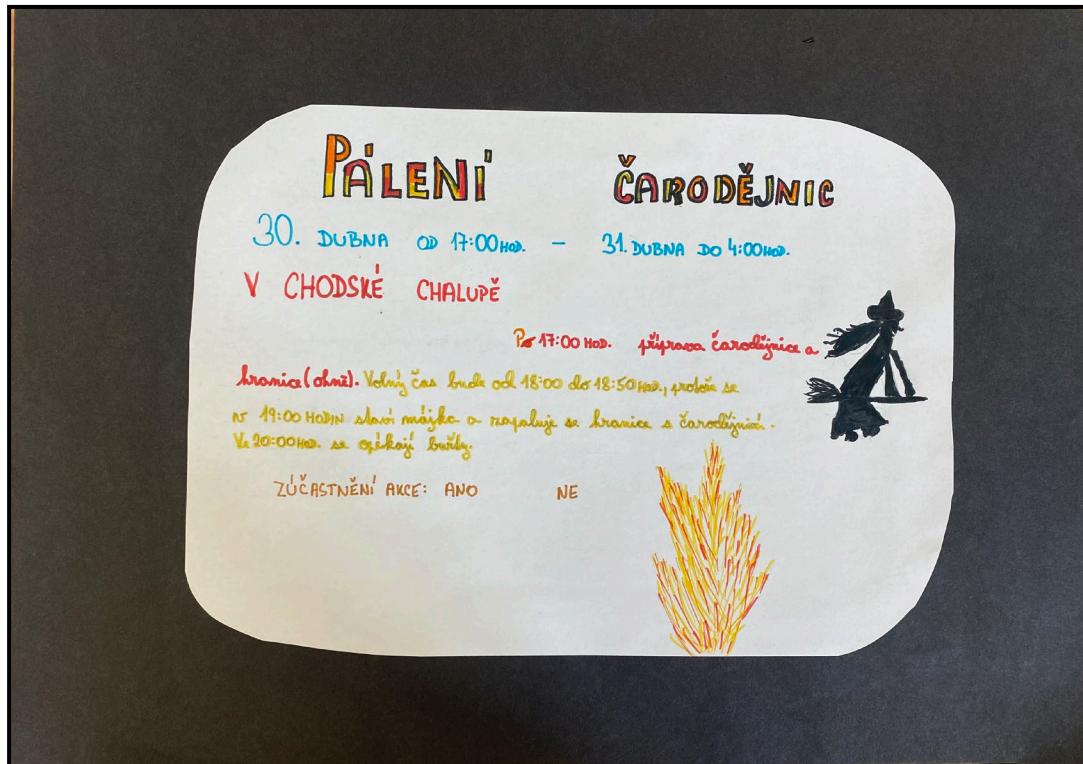 PÁLENÍ ČARODĚJNIC
30. DUBNA OD 17:00 HOD. - 31. DUBNA DO 4:00 HOD.
V CHODSKÉ CHALUPĚ
Po 17:00 HOD. příprava čarodějnice a
hranice (ohně). Volný čas bude od 18:00 do 18:50 HOD., protože se
v 19:00 HODIN staví májka a zapaluje se hranice s čarodějnicí.
Ve 20:00 HOD. se opékají buřty.
ZÚČASTNĚNÍ AKCE: ANO NE